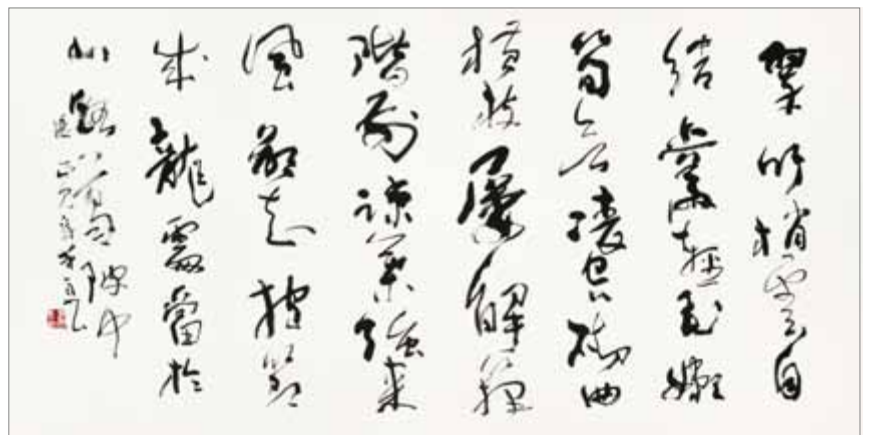 翠竹梢雲自
結叢輕花嫩
筍欲凌空砌曲
橫枝屢解籜
階前疎葉強来
風欲知抱節
成龍處當於
山路葛陂中